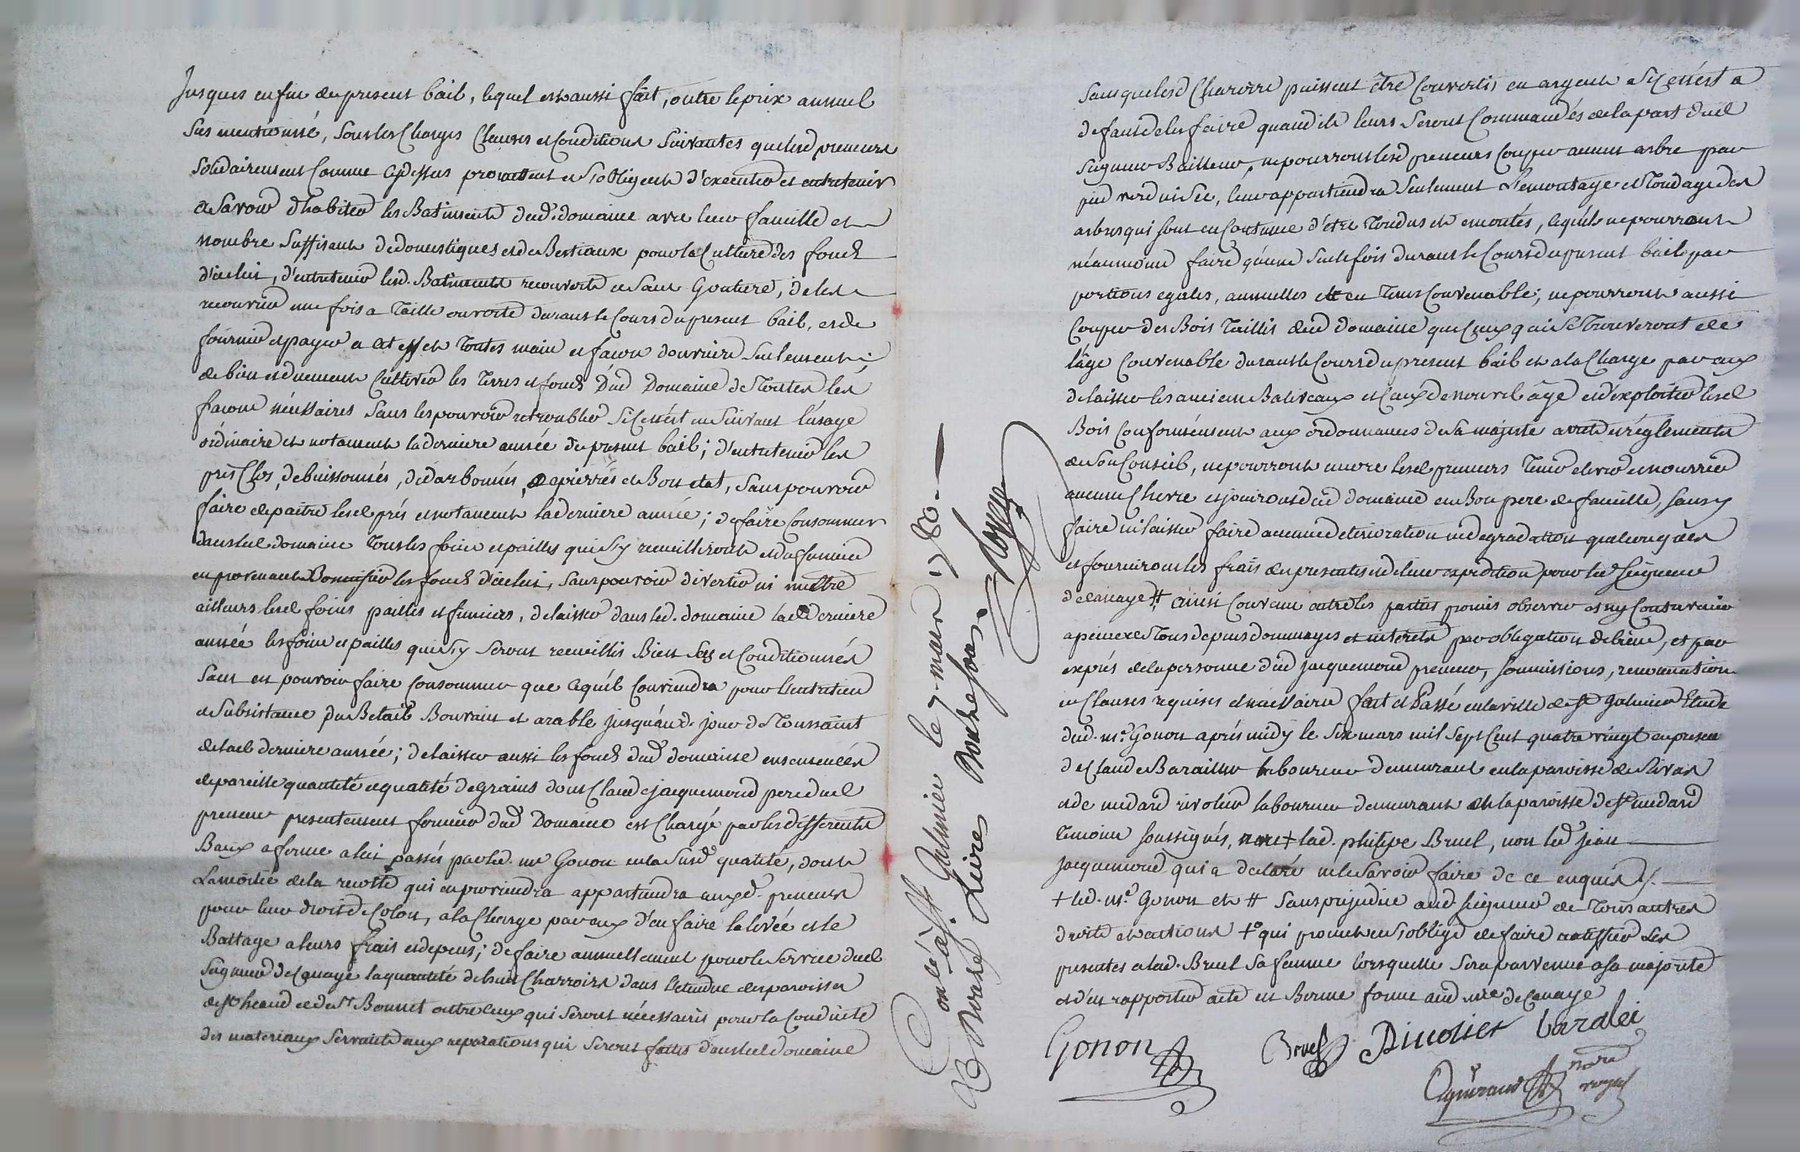 Jusques en fin du present bail, lequel est aussi fait, outre le prix annuel
Sus mentionné, Sous les Charges Clauses et Conditions Suivantes que lesd preneurs
Solidairement Comme Cydessus promettent et s'obligent d'executer et entretenir
a Savoir d'habiter les Batiments dud. domaine avec leur famille et
nombre Suffisent de domestiques et de Bestiaux pour la Culture des fonds
d'icelui, d'entretenir lesd. Batiments recouverts et Sans Goutiere, de les
recouvrir une fois a Taille ouverte durant le Cours du present bail, et de
fournir et payer a cet effet Toutes main et façon d'ouvriers Seulement;
de bien et duement Cultiver les Terres et fonds Dud Domaine de Toutes les
façons nécessaires Sans les pouvoir retroubler Si Ce n'est en Suivant l'usage
ordinaire et notament la derniere année du present bail; d'entretenir les
prés Clos, debuissonnés, dedarbonnés, depierrés et en Bon etat, Sans pouvoir
faire depaitre lesd prés et notament la derniere année; de faire Consommer
dans led domaine Tous les foins et pailles qui S'y recueilliront et du fumier
en provenant Bonnifier les fonds d'icelui, Sans pouvoir divertir ni mettre
ailleurs lesd foins pailles et fumiers, de laisser dans led. domaine lad. derniere
année les foins et pailles qui S'y Seront recueillis Bien Secs et Conditionnés
Sans en pouvoir faire Consommer que Ce qu'il Conviendra pour l'entretien
et Subsistance Du Betail Bouvrain et arable jusqu'aud. jour de Toussaint
de lad derniere année; de laisser aussi les fonds dud domaine ensemencés
de pareille quantité et qualité de grains dont Claude Jacquemond pere dud
preneur presentement fermier dud Domaine est Chargé par les differents
Baux a ferme a lui passés par led. me Gonon en la Susd qualité, dont
La moitié de la recolte qui en proviendra appartiendra auxd. preneurs
pour leur droit de Colon, a la Charge par eux d'en faire la levée et le
Battage a leurs frais et depens; de faire annuellement pour le Service dud
Seigneur de Cunaye la quantité de huit Charrois dans l'etendue des paroisses
de St heand et de St Bonnet outre Ceux qui Seront nécessaires pour la Conduite
des materiaux Servants aux reparations qui Seront faites dans led domaine
Controlé a St Galmier le 7. mars 1780.
Reçu Treize Livres Douze sols
Sans que lesd Charrois puissent être Convertis en argent Si Ce n'est a
defaut de les faire quand ils leurs Seront Commandés de la part dud
Seigneur Bailleur, ne pourront lesd preneurs Couper aucun arbre par
pied verd ni Sec, leur appartiendra Seulement l'emontage et Tondage des
arbres qui sont en Coutume d'être Tondus et emontés, Ce qu'ils ne pourront
néanmoins faire qu'une Seule fois durant le Cours du present bail par
portions egales, annuelles et en Tems Convenable; ne pourront aussi
Couper des Bois Taillis dud domaine que Ceux qui Se Trouveront de
l'âge Convenable durant le Cours du present bail et a la Charge par eux
de laisser les anciens Baliveaux et Ceux de nouvel âge et d'exploiter lesd
Bois Conformément aux ordonnances de Sa majesté arrets et réglements
de Son Conseil, ne pourront encore lesd preneurs Tenir elever et nourrir
aucune Chevre et jouiront dud domaine en Bon pere de famille, Sans y
faire ni laisser faire aucune deterioration ni degradation quelconques
et fourniront les frais des presentes et de leur expedition pour led Seigneur
de Cunaye # ainsi Convenu entre les parties promis observer et n'y Contrevenir
a peine de Tous depens dommages et interets par obligation de biens, et par
exprés de la personne dud Jacquemond preneur, Soumissions, renonciations
et Clauses requises et nécessaires fait et Passé en la ville de St Galmier Etude
dud. me. Gonon aprés midy le Six mars mil Sept Cent quatre vingt en presence
de Claude Barailler laboureur demeurant en la paroisse de Rivas
et de medard rivolier laboureur demeurant en la paroisse de St medard
Temoins Soussignés, avec + lad. philipe Bruel, non led jean
Jacquemond qui a declaré ne le Savoir faire de ce enquis /.
+ led. me. Gonon et # Sans prejudice aud Seigneur de Tous autres
droits et actions +° qui promet et S'oblige de faire ratiffier Les
presentes a lad. Bruel Sa femme lorsqu'elle Sera parvenue a Sa majorité
et d'en rapporter acte en Bonne forme aud Sieur de Cunaye
Gonon Bruel Rivolier baralei